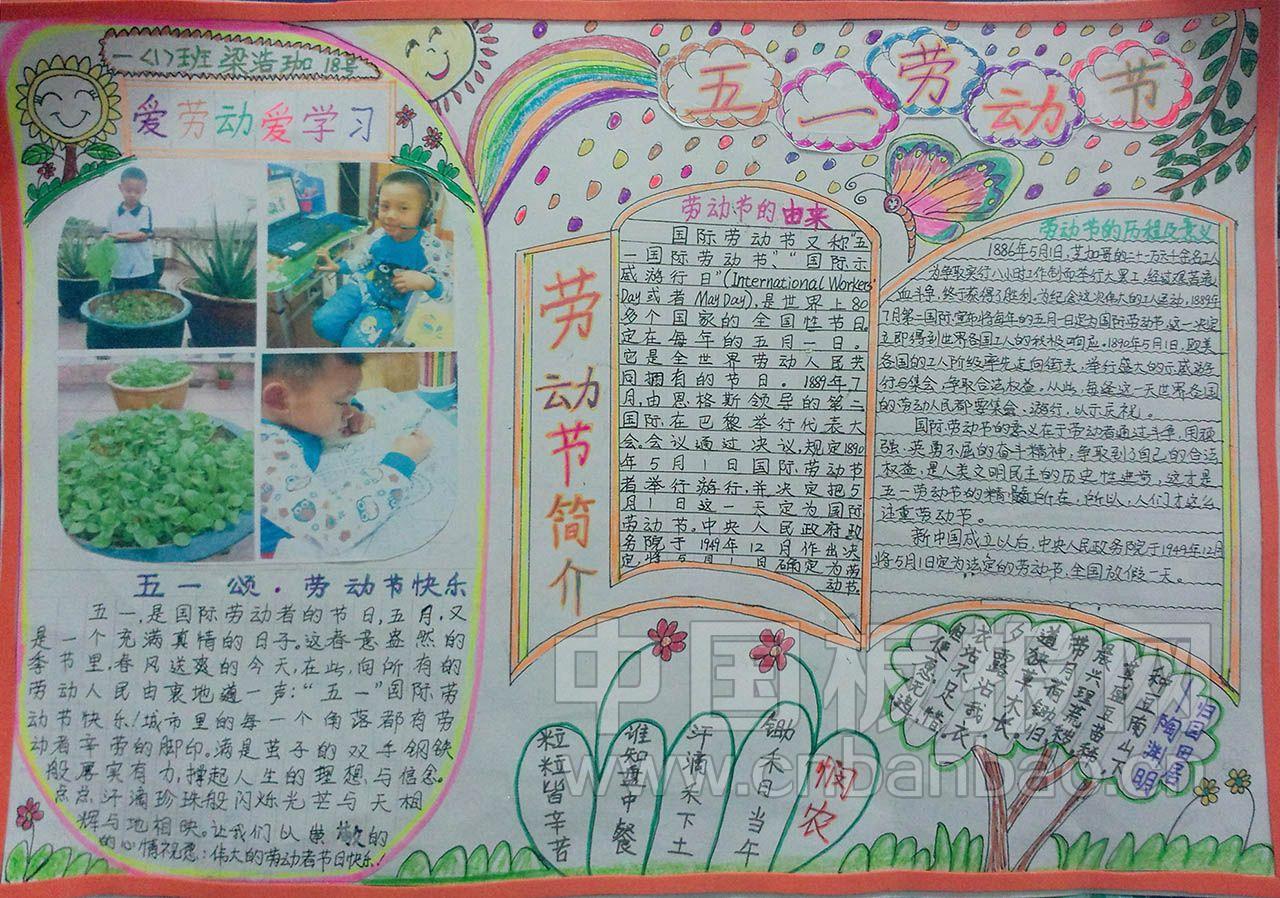 一〈1〉班 梁浩珈 18号
爱劳动爱学习
五一颂·劳动节快乐
五一,是国际劳动者的节日,五月,又
是一个充满真情的日子。这春意盎然的
季节里,春风送爽的今天,在此,向所有的
劳动人民由衷地道一声:“五一”国际劳
动节快乐!城市里的每一个角落都有劳
动者辛劳的脚印。满是茧子的双手钢铁
般厚实有力,撑起人生的理想与信念。
点点汗滴珍珠般闪烁光芒与天相
辉与地相映。让我们以崇敬的
的心情祝愿:伟大的劳动者节日快乐!
五一劳动节
劳动节简介
劳动节的由来
国际劳动节又称“五
一国际劳动节”、“国际示
威游行日”(International Workers'
Day或者May Day),是世界上80
多个国家的全国性节日。
定在每年的五月一日。
它是全世界劳动人民共
同拥有的节日。1889年7
月,由恩格斯领导的第二
国际在巴黎举行代表大
会。会议通过决议,规定1890
年5月1日国际劳动节
者举行游行,并决定把5
月1日这一天定为国际
劳动节。中央人民政府政
务院于1949年12月作出决
定,将5月1日确定为劳
动节。
劳动节的历程及意义
1886年5月1日,芝加哥的二十一万六千余名工人
为争取实行八小时工作制而举行大罢工,经过艰苦流
血斗争,终于获得了胜利。为纪念这次伟大的工人运动,1889年
7月第二国际宣布将每年的五月一日定为国际劳动节。这一决定
立即得到世界各国工人的积极响应。1890年5月1日,欧美
各国的工人阶级率先走向街头,举行盛大的示威游
行与集会,争取合法权益。从此,每逢这一天世界各国
的劳动人民都要集会、游行,以示庆祝。
国际劳动节的意义在于劳动者通过斗争,用顽
强、英勇不屈的奋斗精神,争取到了自己的合法
权益,是人类文明民主的历史性进步,这才是
五一劳动节的精髓所在,所以,人们才这么
注重劳动节。
新中国成立以后,中央人民政务院于1949年12月
将5月1日定为法定的劳动节,全国放假一天。
悯农
锄禾日当午
汗滴禾下土
谁知盘中餐
粒粒皆辛苦
归园田居
陶渊明
种豆南山下,
草盛豆苗稀。
晨兴理荒秽,
带月荷锄归。
道狭草木长,
夕露沾我衣。
衣沾不足惜,
但使愿无违。
中国板报网
www.cnbanbao.cn